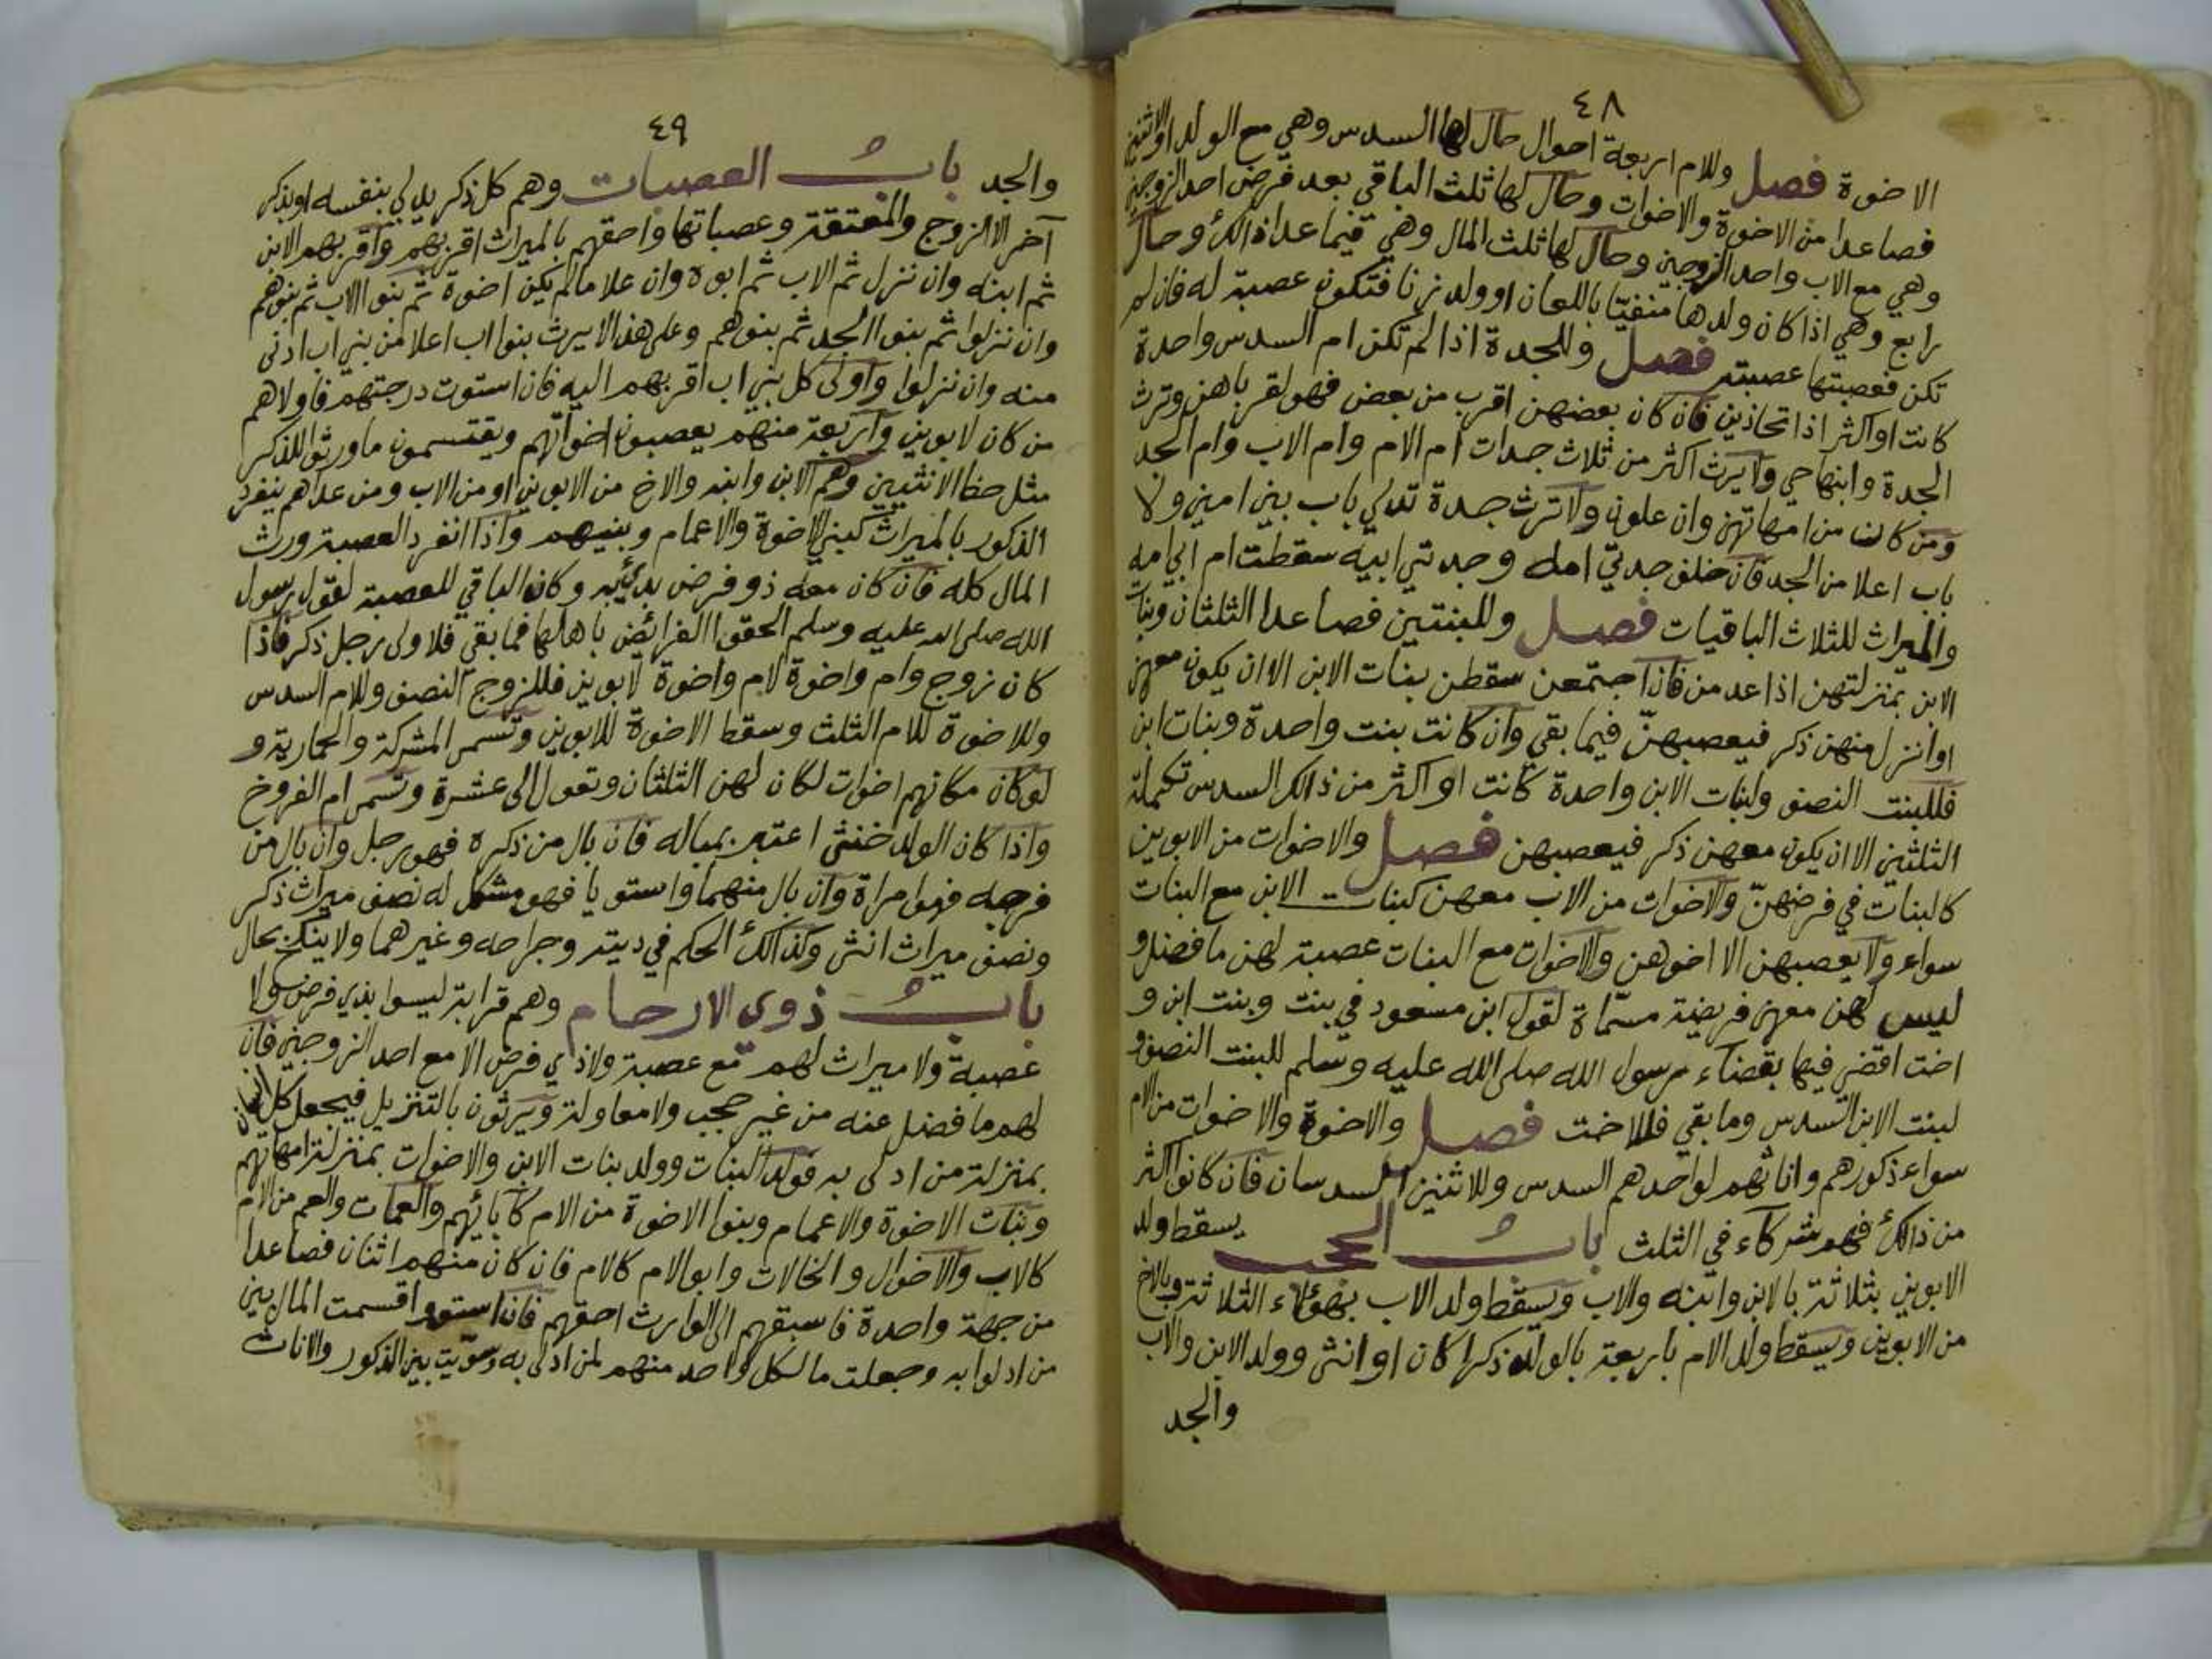 ٤٨
الاخوة فصل وللام اربعة احوال حال لها السدس وهي مع الولد او الاثنين
فصاعدا من الاخوة والاخوات وحال لها ثلث الباقي بعد فرض احد الزوجين
وهي مع الاب واحد الزوجين وحال لها ثلث المال وهي فيما عدا ذالك وحال
رابع وهي اذا كان ولدها منفيّا باللعان او ولد زنا فتكون عصبة له فان لم
تكن فعصبتها عصبته فصل وللجدة اذا لم تكن ام السدس واحدة
كانت او اكثر اذا تحاذين فان كان بعضهن اقرب من بعض فهو لقرباهن وترث
الجدة وابنها حي ولا يرث اكثر من ثلاث جدات ام الام وام الاب وام الجد
ومن كان من امهاتهن وان علون ولا ترث جدة تدلي باب بين امين ولا
باب اعلا من الجد فان خلف جدتي امه وجدتي ابيه سقطت ام ابي امه
والميراث للثلاث الباقيات فصل وللبنتين فصاعدا الثلثان وبنات
الابن بمنزلتهن اذا عدمن فان اجتمعن سقطن بنات الابن الا ان يكون معهن
او انزل منهن ذكر فيعصبهنّ فيما بقي وان كانت بنت واحدة وبنات ابن
فللبنت النصف ولبنات الابن واحدة كانت او اكثر من ذالك السدس تكملة
الثلثين الا ان يكون معهن ذكر فيعصبهن فصل والاخوات من الابوين
كالبنات في فرضهنّ والاخوات من الاب معهن كبنات الابن مع البنات
سواء ولا يعصبهن الا اخوهن والاخوات مع البنات عصبة لهن ما فضل و
ليس لهن معهن فريضة مسمّاة لقول ابن مسعود في بنت وبنت ابن و
اخت اقضي فيها بقضاء رسول الله صلى الله عليه وسلم للبنت النصف و
لبنت الابن السدس وما بقي فللاخت فصل والاخوة والاخوات من الام
سواء ذكورهم واناثهم لواحدهم السدس وللاثنين السدسان فان كانوا اكثر
من ذالك فهم شركاء في الثلث باب الحجب يسقط ولد
الابوين بثلاثة بالابن وابنه والاب ويسقط ولد الاب بهؤلاء الثلاثة وبالاخ
من الابوين ويسقط ولد الام باربعة بالولد ذكرا كان او انثى وولد الابن والاب
والجد
٤٩
والجد باب العصبات وهم كل ذكر يدلي بنفسه او بذكر
آخر الا الزوج والمعتقة وعصباتها واحقهم بالميراث اقربهم واقربهم الابن
ثم ابنه وان نزل ثم الاب ثم ابوه وان علا مالم يكن اخوة ثم بنو الاب ثم بنوهم
وان نزلوا ثم بنوا الجد ثم بنوهم وعلى هذا لا يرث بنوا اب اعلا من بني اب ادنى
منه وان نزلوا واولى كل بني اب اقربهم اليه فان استوت درجتهم فاولاهم
من كان لابوين واربعة منهم يعصبون اخواتهم ويقتسمون ما ورثوا للذكر
مثل حظ الانثيين وهم الابن وابنه والاخ من الابوين او من الاب ومن عداهم ينفرد
الذكور بالميراث كبني الاخوة والاعمام وبنيهم واذا انفرد العصبة ورث
المال كله فان كان معه ذو فرض بدئ به وكان الباقي للعصبة لقول رسول
الله صلى الله عليه وسلم الحقوا الفرائض باهلها فما بقي فلاولى رجل ذكر فاذا
كان زوج وام واخوة لام واخوة لابوين فللزوج النصف وللام السدس
وللاخوة للام الثلث وسقط الاخوة للابوين وتسمى المشركة والحمارية و
لو كان مكانهم اخوات لكان لهن الثلثان وتعول الى عشرة وتسمى ام الفروخ
واذا كان الولد خنثى اعتبر بمباله فان بال من ذكره فهو رجل وان بال من
فرجه فهو امراة وان بال منهما واستويا فهو مشكل له نصف ميراث ذكر
ونصف ميراث انثى وكذالك الحكم في ديته وجراحه وغيرهما ولا ينكح بحال
باب ذوي الارحام وهم قرابة ليسوا بذي فرض ولا
عصبة ولا ميراث لهم مع عصبة ولا ذي فرض الا مع احد الزوجين فان
لهم ما فضل عنه من غير حجب ولا معاولة ويرثون بالتنزيل فيجعل كل انسان
بمنزلة من ادلى به فولد البنات وولد بنات الابن والاخوات بمنزلة امهاتهم
وبنات الاخوة والاعمام وبنوا الاخوة من الام كآبائهم والعمات والعم من الام
كالاب والاخوال والخالات وابو الام كالام فان كان منهم اثنان فصاعدا
من جهة واحدة فاسبقهم الى الوارث احقهم فان استووا قسمت المال بين
من ادلوا به وجعلت ما لكل واحد منهم لمن ادلى به وسوّيت بين الذكور والاناث